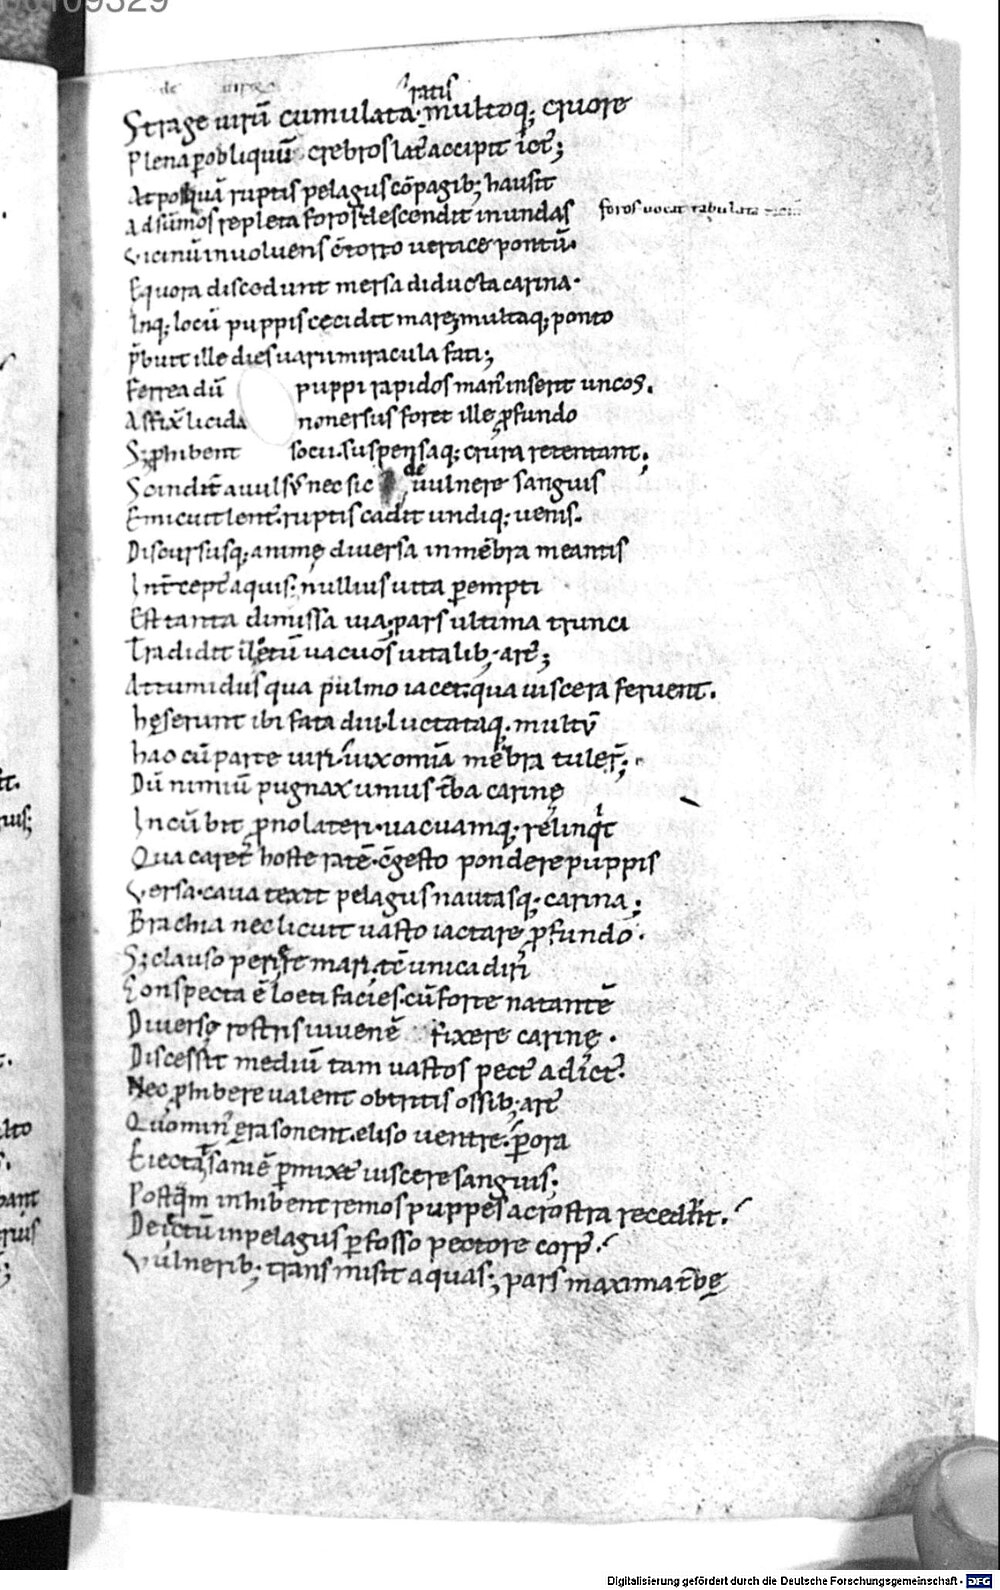 Strage uirū cumulata ratis multoq; cruore
Plena p̄ obliquū crebros lat̄ accipit ict̄;
At posquā ruptis pelagus cōpagib; hausit
Ad sūmos repleta foros descendit in undas foros uocat tabulata
Vicinū inuoluens c̄torto uertice pontū.
Equora discedunt mersa diducta carina.
Inq; locū puppis cęcidit mare; multaq; ponto
p̄buit ille dies uarii miracula fati;
Ferrea dū puppi rapidos man̄ inserit uncos.
Affix̄ licida non ersus foret ille p̱fundo
S; p̱hibent socii. suspensaq; crura retentant.
Scindit̄ auulsꝰ nec sic de uulnere sanguis
Emicuit lent̄. ruptis cadit undiq; uenis.
Discursusq; animę diuersa in mēbra meantis
Int̄cept̄ aquis; nullius uita p̄empti
Est tanta dimissa uia; pars ultima trunci
Tradidit ī lętū uacuos uitalib; art̄;
At tumidus qua pulmo iacet. qua uiscera feruent.
hęserunt ibi fata diu. luctataq; multū
hac cū parte uiri. uix omīa mēbra tuler̄;
Dū nimiū pugnax unius t̄ba carinę
Incūbit p̱no lateri. uacuamq; relinqͥt
Qua caret hoste ratē. c̄gesto pondere puppis
Versa. caua texit pelagus nautasq; carina;
Brachia nec licuit uasto iactare p̱fundo.
S; clauso periere mari. tc̄ unica diri
Conspecta ē loeti facies. cū forte natantē
Diuersę rostris iuuenē fixere carinę.
Discessit mediū tam uastos pect̄ ad ict̄.
Nec p̱hibere ualent obtritis ossib; art̄
Quo min̄ ęra sonent. eliso uentre. p̄ ora
Eiectat saniē p̄mixt̄ uiscere sanguis;
Postq̄m inhibent remos puppes ac rostra recedunt.
Deiectū in pelagus p̄fosso pectore corp̄.
Vulnerib; transmisit aquas; pars maxima t̄bę
Digitalisierung gefördert durch die Deutsche Forschungsgemeinschaft - DFG